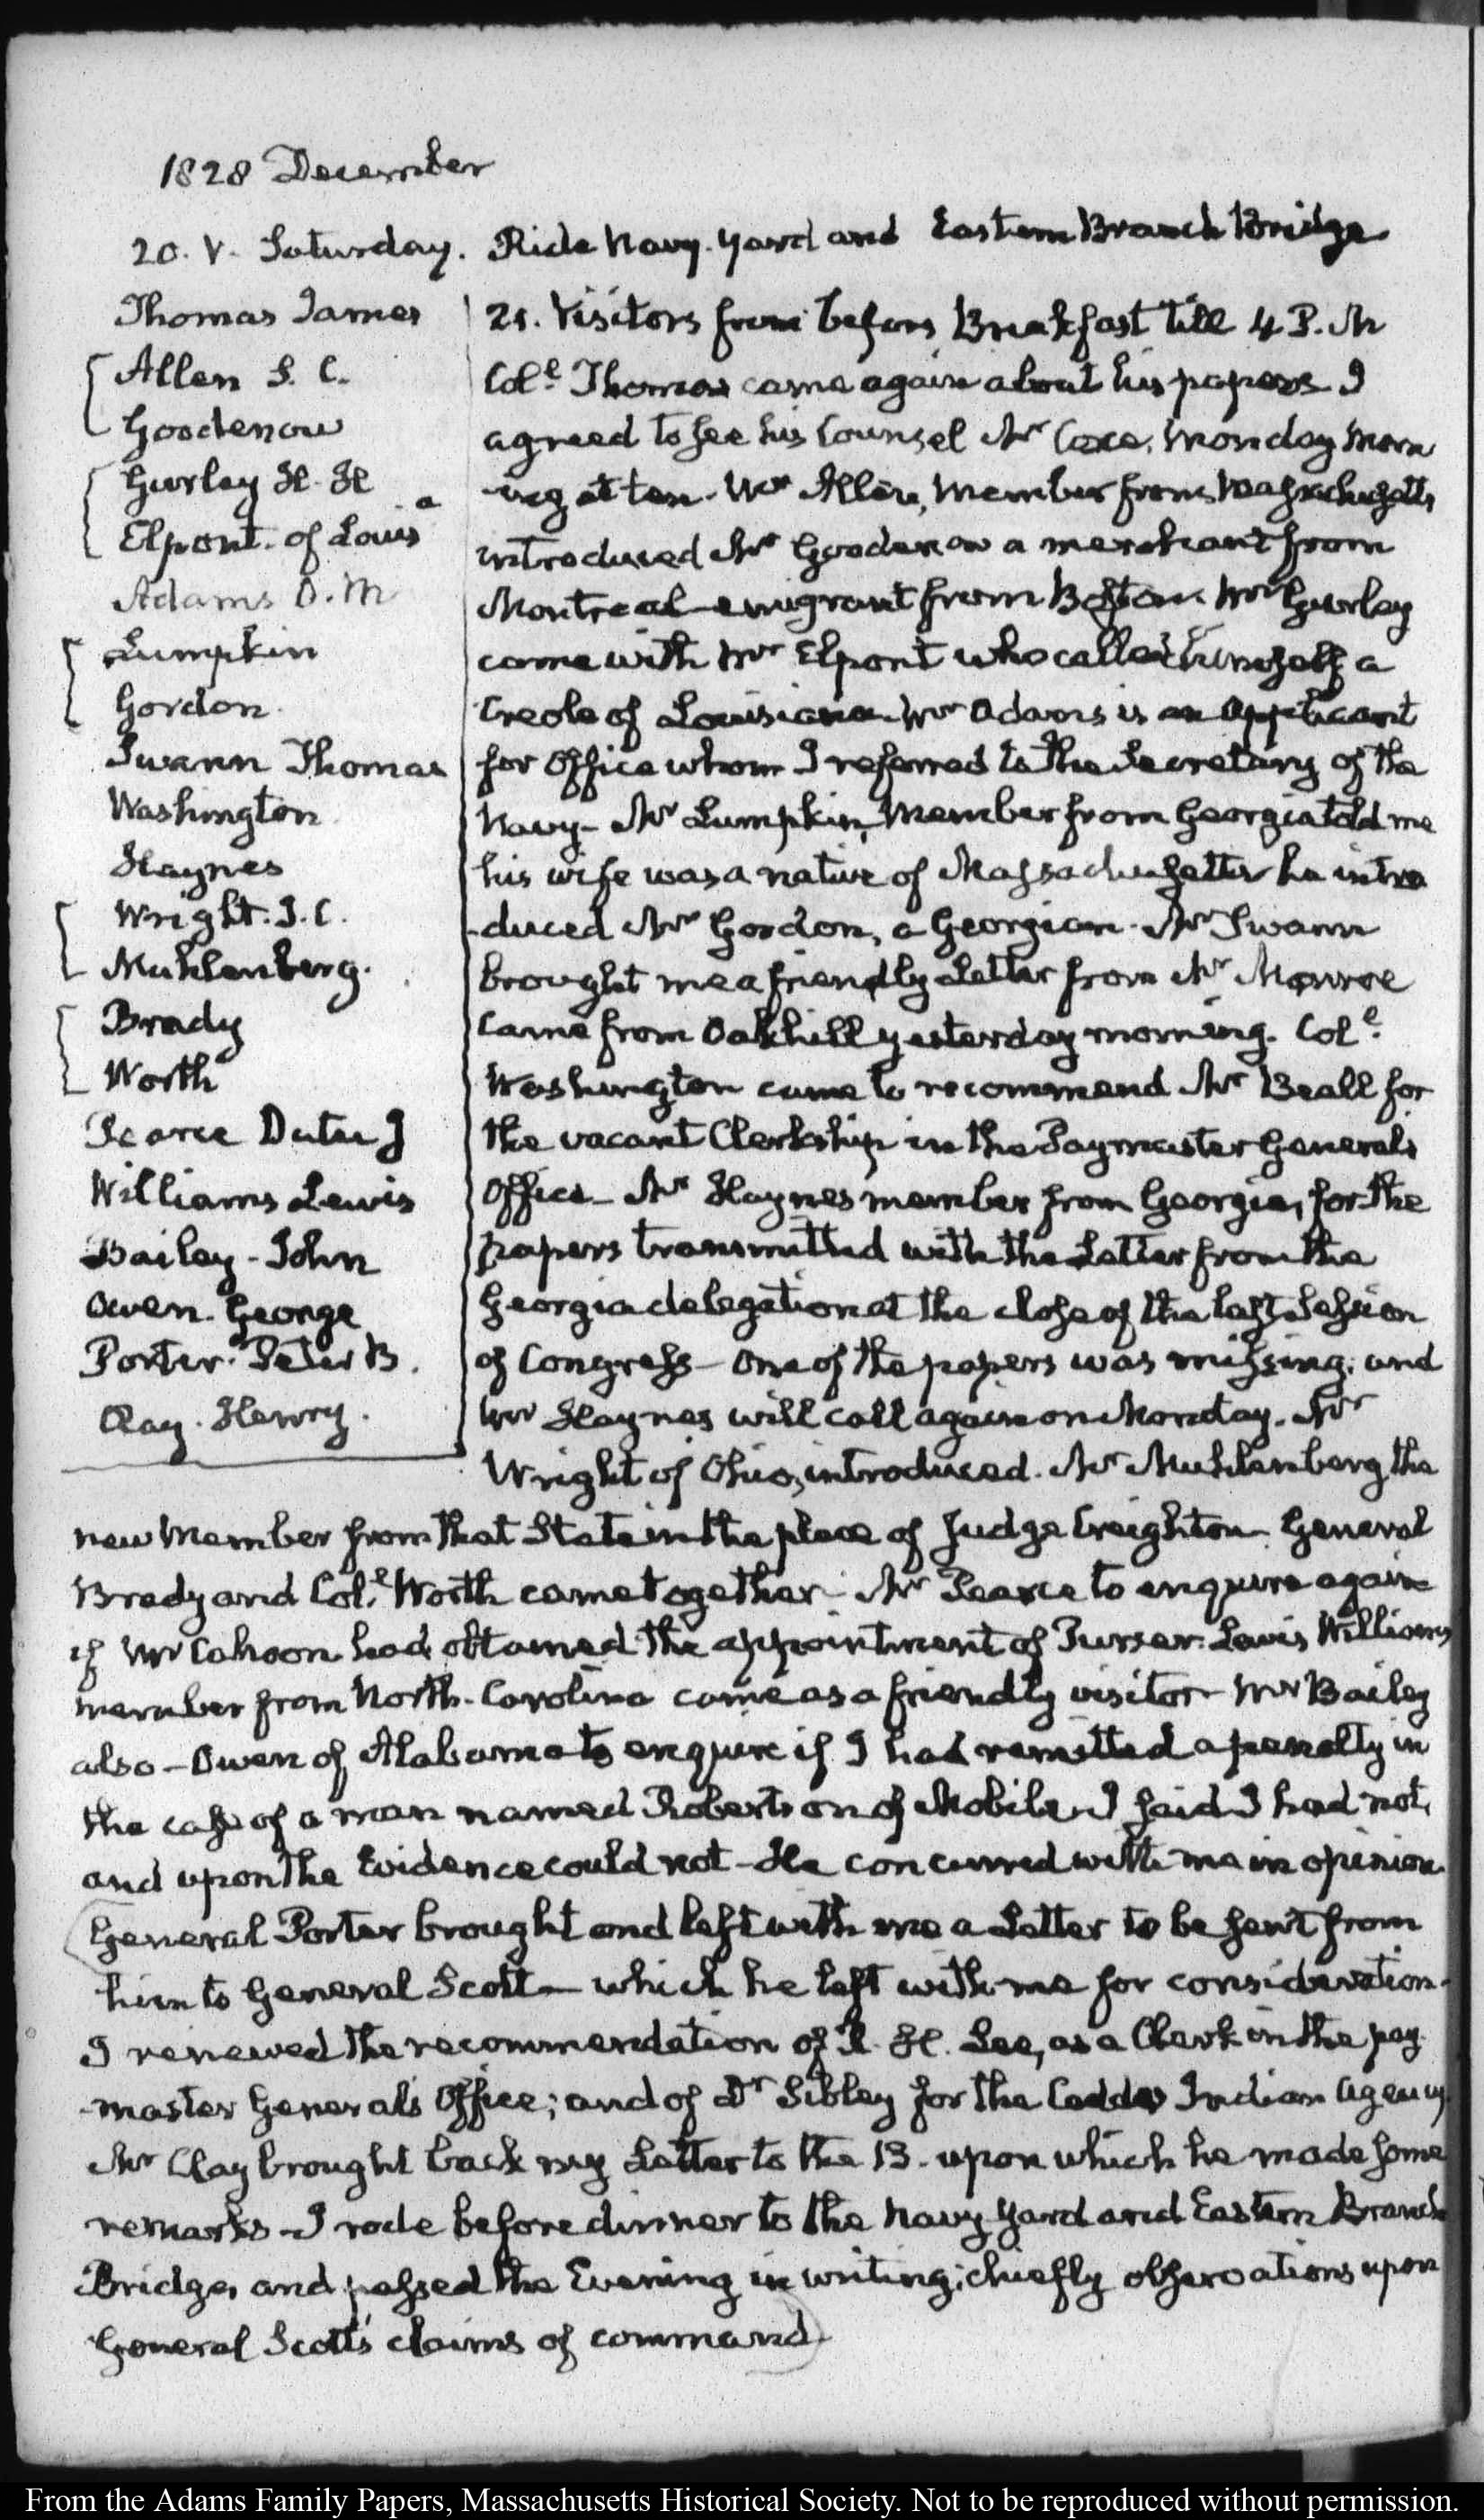 1828 December
20. V. Saturday. Ride Navy. Yard and Eastern Branch Bridge
Thomas James
Allen S. C.
Goodenow
Gurley H. H
Elpont. of Louisa
Adams D. M
Lumpkin
Gordon.
Swann Thomas
Washington
Haynes
Wright. J. C.
Muhlenberg.
Brady
Worth
Pearce Dutee J
Williams Lewis
Bailey - John
Owen. George
Porter. Peter B.
Clay. Henry.
21. Visitors from before Breakfast till 4 P. M
Col.l Thomas came again about his papers I
agreed to see his Counsel Mr Coxe, Monday Morn
-ing at ten. Mr Allen, Member from Massachusetts
introduced Mr Goodenow a merchant from
Montreal emigrant from Boston. Mr Gurley
came with Mr Elpont who called himself a
Creole of Louisiana Mr Adams is an Applicant
for Office whom I referred to the Secretary of the
Navy - Mr Lumpkin, Member from Georgia told me
his wife was a native of Massachusetts he intro
-duced Mr Gordon, a Georgian. Mr Swann
brought me a friendly Letter from Mr Monroe
came from Oakhill yesterday morning. Col.l
Washington came to recommend Mr Beall for
the vacant Clerkship in the Paymaster Generals
Office - Mr Haynes member from Georgia, for the
papers transmitted with the Letter from the
Georgia delegation at the close of the last Session
of Congress - one of the papers was missing, and
Mr Haynes will call again on Monday. Mr
Wright of Ohio, introduced. Mr Muhlenberg the
new Member from that State in the place of Judge Creighton General
Brady and Col.l Worth came together - Mr Pearce to enquire again
if Mr Cahoon had obtained the appointment of Purser. Lewis Williams
member from North-Carolina came as a friendly visitor - Mr Bailey
also - Owen of Alabama to enquire if I had remitted a penalty in
the case of a man named Robertson of Mobile - I said I had not,
and upon the Evidence could not - He concurred with me in opinion.
General Porter brought and left with me a Letter to be sent from
him to General Scott - which he left with me for consideration.
I renewed the recommendation of R. H. Lee, as a Clerk in the pay
-master Generals Office; and of Dr Sibley for the Caddo Indian Agency
Mr Clay brought back my Letter to the 13. upon which he made some
remarks - I rode before dinner to the Navy Yard and Eastern Branch
Bridge, and passed the Evening in writing; chiefly observations upon
General Scott's claims of command
From the Adams Family Papers, Massachusetts Historical Society. Not to be reproduced without permission.